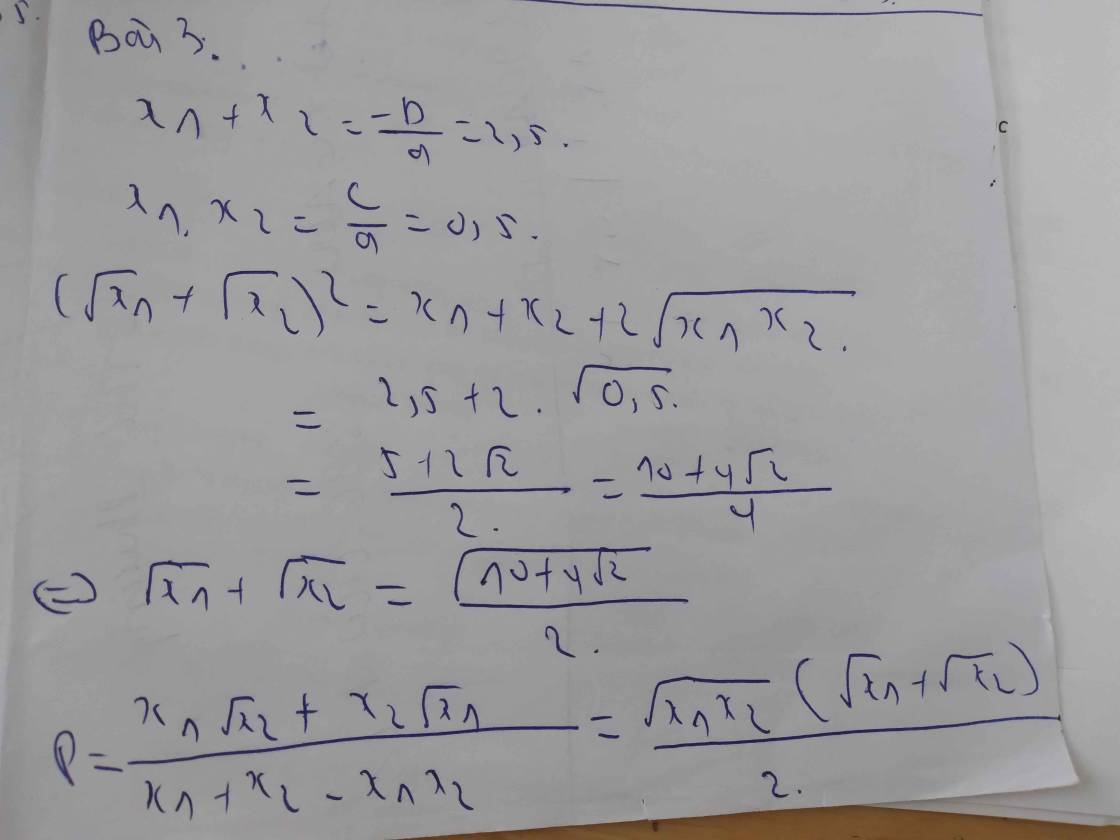 5.
Bài 3.
x1 + x2 = -b/a = 2,5.
x1. x2 = c/a = 0,5.
(√x1 + √x2)² = x1 + x2 + 2√(x1 x2).
= 2,5 + 2. √0,5.
= (5+2√2)/2. = (10+4√2)/4
⇔ √x1 + √x2 = √(10+4√2)/2.
P = (x1√x2 + x2√x1)/(x1 + x2 - x1x2) = √(x1x2) (√x1 + √x2)/2.
c